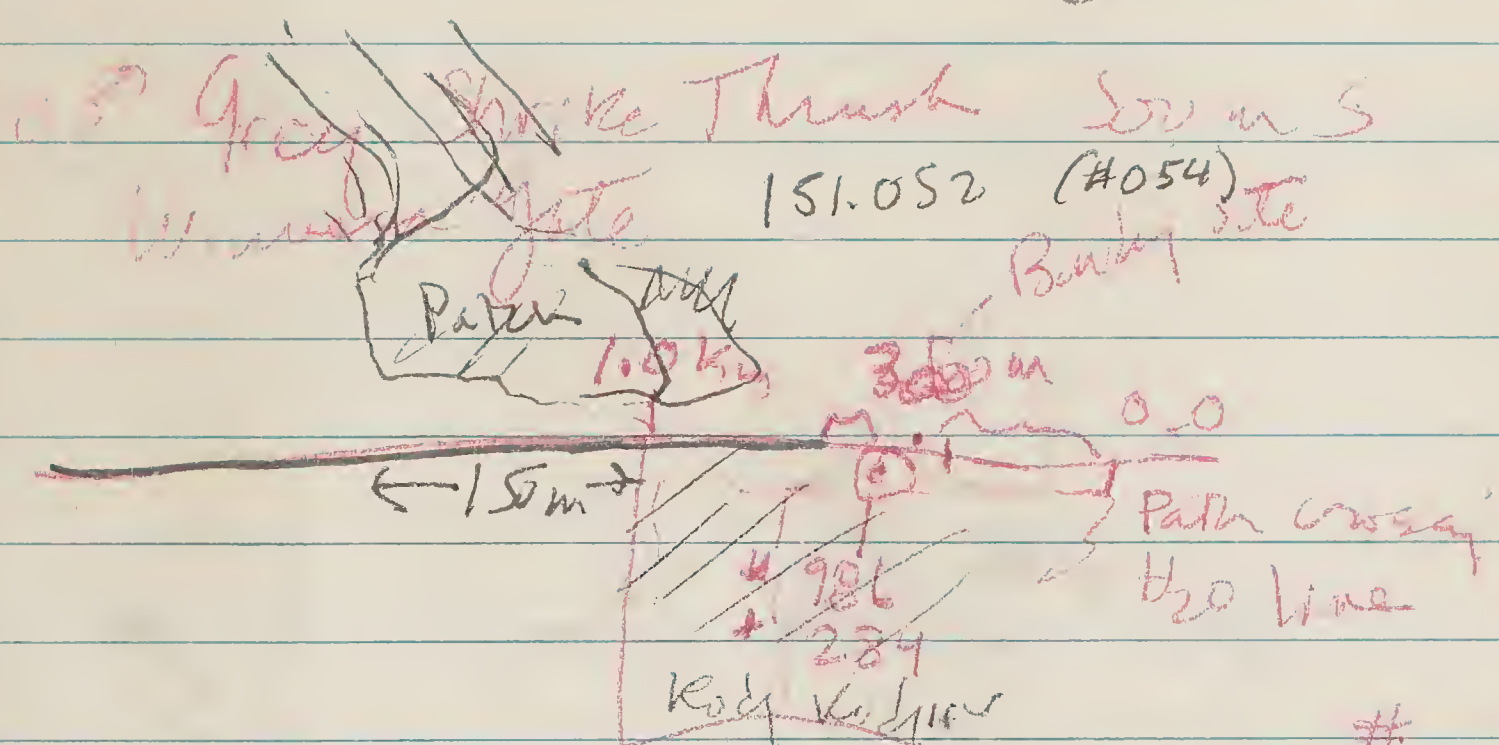 Grey Shrike Thrush 500 m S
gate 151.052 (#054)
Bandy site
Patch
1.0 Km 300 m 0.0
←150m→
Path crossing
H20 line
986
284
#